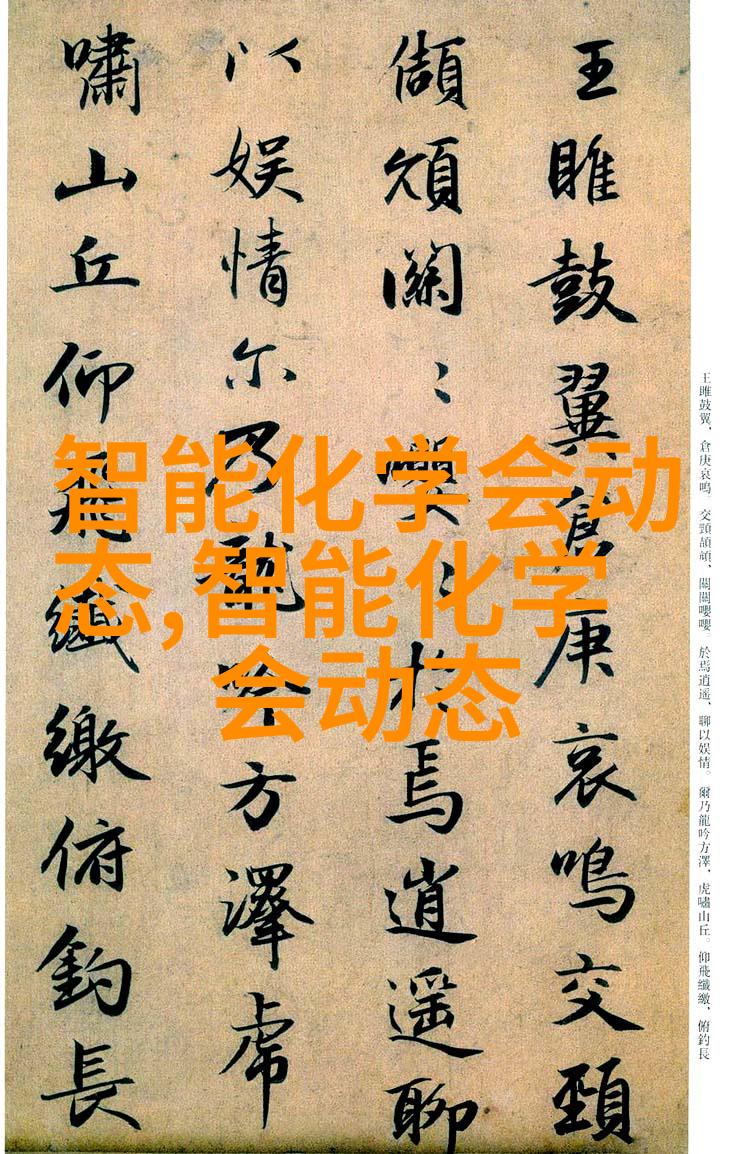 王雎鼓翼倉庚哀鳴交頸
頡頏關〻嚶〻於焉逍遥聊
以娱情尔乃龍吟方澤虎
嘯山丘仰飛纖繳俯釣長
王雎鼓翼、倉庚哀鳴。交頸頡頏、關關嚶嚶。於焉逍遥、聊以娱情。爾乃龍吟方澤、虎嘯山丘。仰飛纖繳、俯釣長
智能化学会动
态,智能化学
会动态